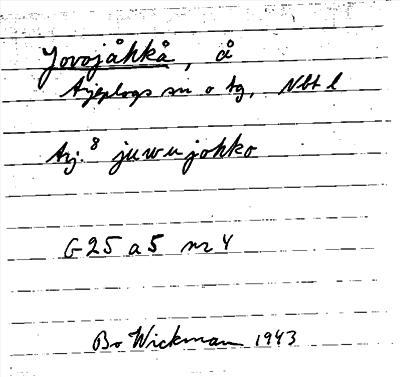 Jovojåhkå, å
Arjeplogs sn o tg, Nbt l
Arj. 8 juwujohko
G 25 a 5 nr 4
Bo Wickman 1943